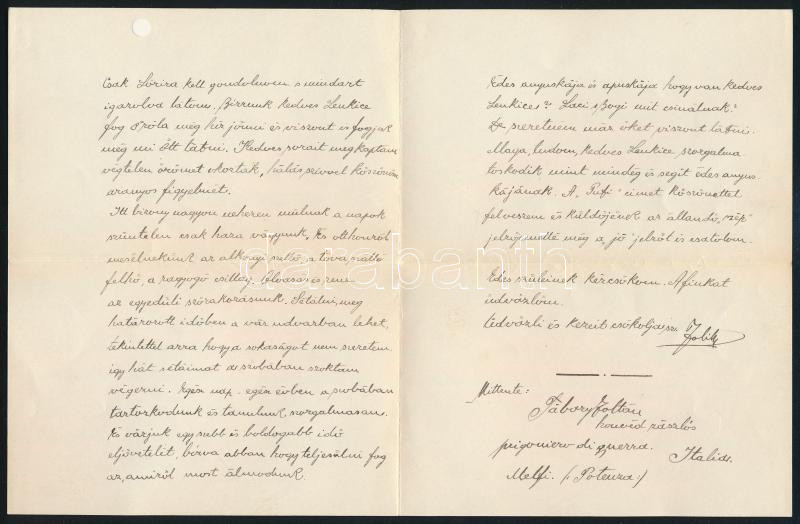 Csak Lórira kell gondolnom s mindart
igazolva látom. Bízzunk kedves Lenkice
fog Róla még hír jönni és viszont is fogjuk
még mi Őtt látni. Kedves sorait megkaptam
végtelen örömet okoztak, hálás szívvel köszönöm
aranyos figyelmét.
Itt bizony nagyon nehezen múlnak a napok
szüntelen csak haza vágyunk. És otthonról
mesélnekünk az alkonyi szellő, a tova szálló
felhő, a ragyogó csillag, olvasás és zene
az egyedüli szórakozásunk. Sétálni, meg
határozott időben a vár udvarban lehet,
tekintettel arra hogy a sokaságot nem szeretem
így hát sétáimat a szobában szoktam
végezni. Egész nap egész évben a szobában
tartózkodunk és tanulunk szorgalmasan.
És várjuk egy szebb és boldogabb idő
eljövetelét, bízva abban hogy teljesülni fog
az, amiről most álmodunk.
Édes anyuskája és apuskája hogy van kedves
Lenkices? Laci s Bogi mit csinálnak?
De szeretném már őket viszont látni.
Maga, tudom, kedves Lenkice, szorgalma-
toskodik mint mindég és segít édes anyus-
kájának. A "Pufi" címet köszönettel
felveszem és küldőjének az állandó "szép"
jelző mellé még a "jó" jelzőt is csatolom.
Édes szüleinek kézcsókom. A fiukat
üdvözlöm.
Üdvözli és kezeit csókolja
Zoli
Mittente:
Tábory Zoltán
honvéd zászlós
prigioniero di guerra.
Italia.
Melfi. (: Potenza :)
darabanth